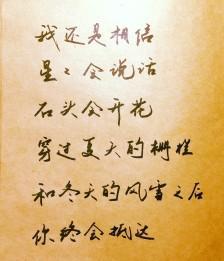 我还是相信
星々会说话
石头会开花
穿过夏天的栅栏
和冬天的风雪之后
你终会抵达